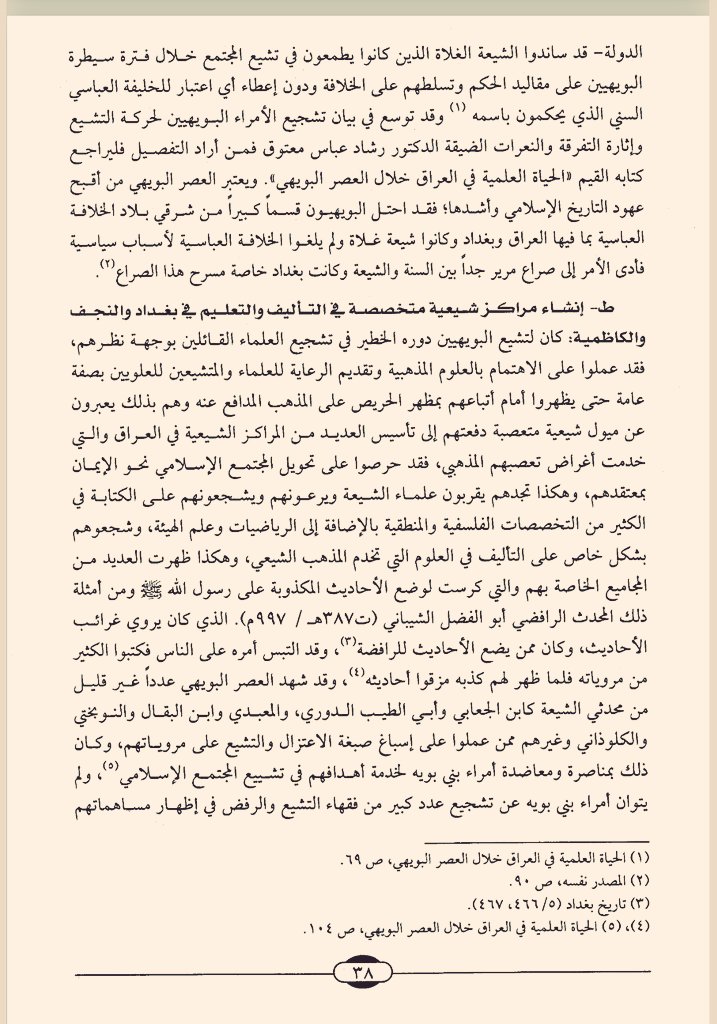 الدولة- قد ساندوا الشيعة الغلاة الذين كانوا يطمعون في تشيع المجتمع خلال فترة سيطرة
البويهيين على مقاليد الحكم وتسلطهم على الخلافة ودون إعطاء أي اعتبار للخليفة العباسي
السني الذي يحكمون باسمه (١) وقد توسع في بيان تشجيع الأمراء البويهيين لحركة التشيع
وإثارة التفرقة والنعرات الضيقة الدكتور رشاد عباس معتوق فمن أراد التفصيل فليراجع
كتابه القيم «الحياة العلمية في العراق خلال العصر البويهي». ويعتبر العصر البويهي من أقبح
عهود التاريخ الإسلامي وأشدها؛ فقد احتل البويهيون قسماً كبيراً من شرقي بلاد الخلافة
العباسية بما فيها العراق وبغداد وكانوا شيعة غلاة ولم يلغوا الخلافة العباسية لأسباب سياسية
فأدى الأمر إلى صراع مرير جداً بين السنة والشيعة وكانت بغداد خاصة مسرح هذا الصراع(٢).
ط- إنشاء مراكز شيعية متخصصة في التأليف والتعليم في بغداد والنجف
والكاظمية: كان لتشيع البويهيين دوره الخطير في تشجيع العلماء القائلين بوجهة نظرهم،
فقد عملوا على الاهتمام بالعلوم المذهبية وتقديم الرعاية للعلماء والمتشيعين للعلويين بصفة
عامة حتى يظهروا أمام أتباعهم بمظهر الحريص على المذهب المدافع عنه وهم بذلك يعبرون
عن ميول شيعية متعصبة دفعتهم إلى تأسيس العديد من المراكز الشيعية في العراق والتي
خدمت أغراض تعصبهم المذهبي، فقد حرصوا على تحويل المجتمع الإسلامي نحو الإيمان
بمعتقدهم، وهكذا تجدهم يقربون علماء الشيعة ويرعونهم ويشجعونهم على الكتابة في
الكثير من التخصصات الفلسفية والمنطقية بالإضافة إلى الرياضيات وعلم الهيئة، وشجعوهم
بشكل خاص على التأليف في العلوم التي تخدم المذهب الشيعي، وهكذا ظهرت العديد من
المجاميع الخاصة بهم والتي كرست لوضع الأحاديث المكذوبة على رسول الله ﷺ ومن أمثلة
ذلك المحدث الرافضي أبو الفضل الشيباني (ت٣٨٧هـ / ٩٩٧م). الذي كان يروي غرائب
الأحاديث، وكان ممن يضع الأحاديث للرافضة(٣)، وقد التبس أمره على الناس فكتبوا الكثير
من مروياته فلما ظهر لهم كذبه مزقوا أحاديثه(٤)، وقد شهد العصر البويهي عدداً غير قليل
من محدثي الشيعة كابن الجعابي وأبي الطيب الدوري، والمعبدي وابن البقال والنوبختي
والكلوذاني وغيرهم ممن عملوا على إسباغ صبغة الاعتزال والتشيع على مروياتهم، وكان
ذلك بمناصرة ومعاضدة أمراء بني بويه لخدمة أهدافهم في تشييع المجتمع الإسلامي(٥)، ولم
يتوان أمراء بني بويه عن تشجيع عدد كبير من فقهاء التشيع والرفض في إظهار مساهماتهم
(١) الحياة العلمية في العراق خلال العصر البويهي، ص ٦٩.
(٢) المصدر نفسه، ص ٩٠.
(٣) تاريخ بغداد (٥/ ٤٦٦، ٤٦٧).
(٤)، (٥) الحياة العلمية في العراق خلال العصر البويهي، ص ١٠٤.
٣٨